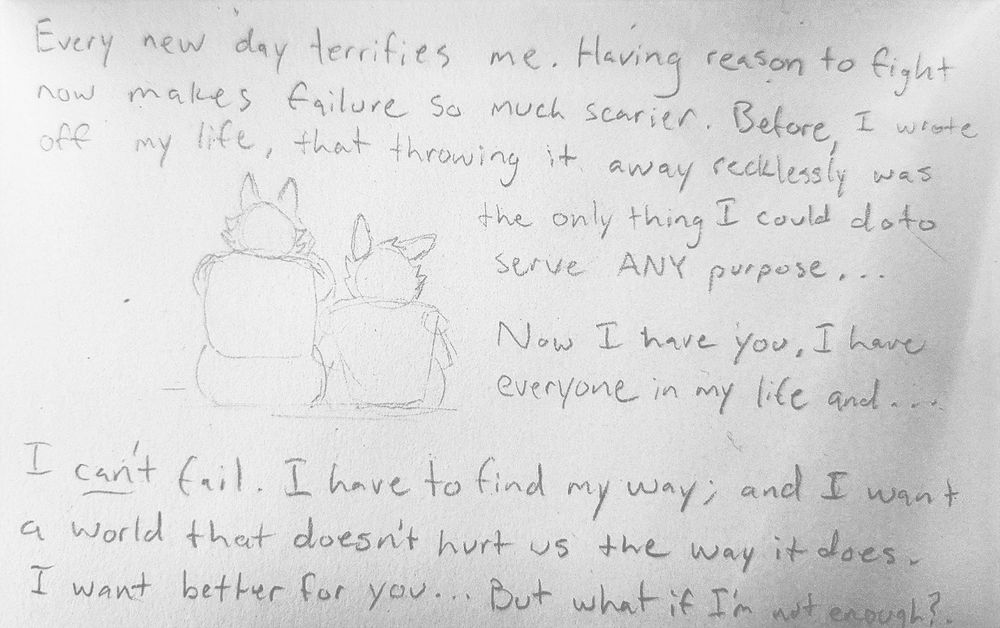 Every new day terrifies me. Having reason to fight
now makes failure so much scarier. Before, I wrote
off my life, that throwing it away recklessly was
the only thing I could do to
serve ANY purpose...
Now I have you, I have
everyone in my life and....
I can't fail. I have to find my way; and I want
a world that doesn't hurt us the way it does.
I want better for you... But what if I'm not enough?